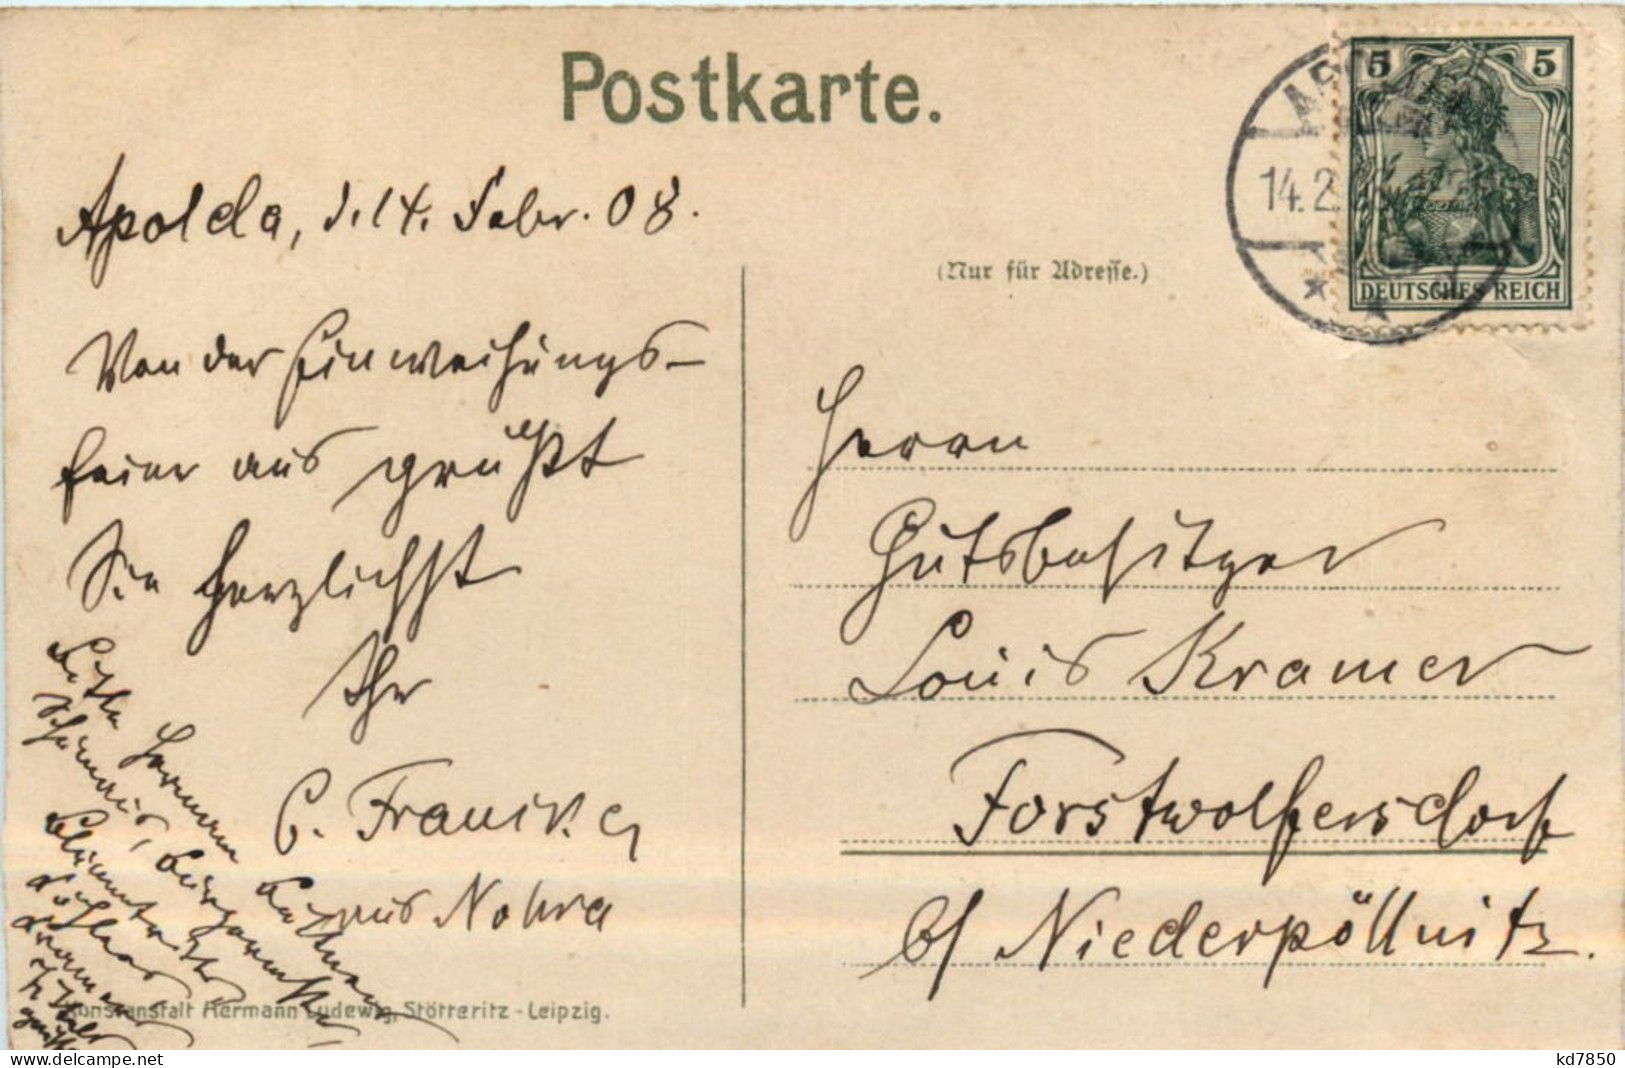 Postkarte.
Apolda, d. 14. Febr. 08.
Von der Einweihungs-
feier aus grüßt
Sie herzlichst
Ihr
C. Francke
aus Nohra
Hermann
Bürgermstr.
Kunstanstalt Hermann Ludewig, Stötteritz-Leipzig.
5 5
DEUTSCHES REICH
AP
14.2
(Nur für Adresse.)
Herrn
Gutsbesitzer
Louis Kramer
Forstwolfersdorf
b/ Niederpöllnitz.
delcampe.net
kd7850